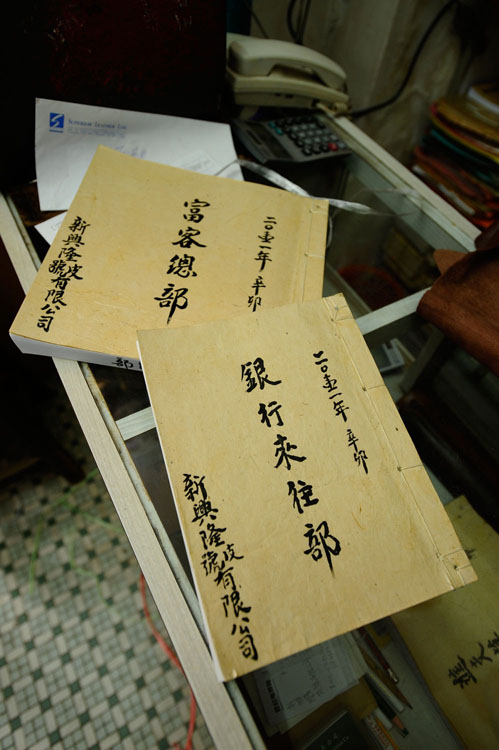 SUPERIOR LEATHER LTD.
二〇壹一年 辛卯
富客總部
新興隆皮號有限公司
二〇壹一年 辛卯
銀行來往部
新興隆皮號有限公司